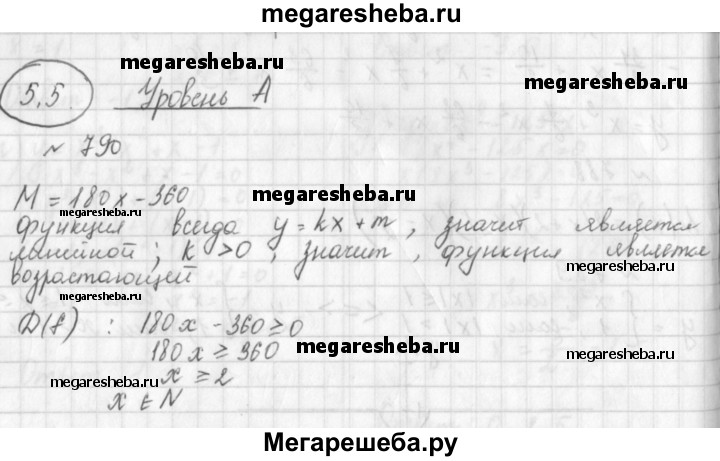 megaresheba.ru
5,5 Уровень А
megaresheba.ru
megaresheba.ru
N 790
megaresheba.ru
M = 180x - 360
megaresheba.ru
функция всегда y = kx + m, значит является
линейной; k > 0, значит, функция является
megaresheba.ru
возрастающей
megaresheba.ru
D(f) : 180x - 360 ≥ 0
180x ≥ 360
megaresheba.ru
x ≥ 2
megaresheba.ru
megaresheba.ru
x ∈ N
Мегарешеба.ру